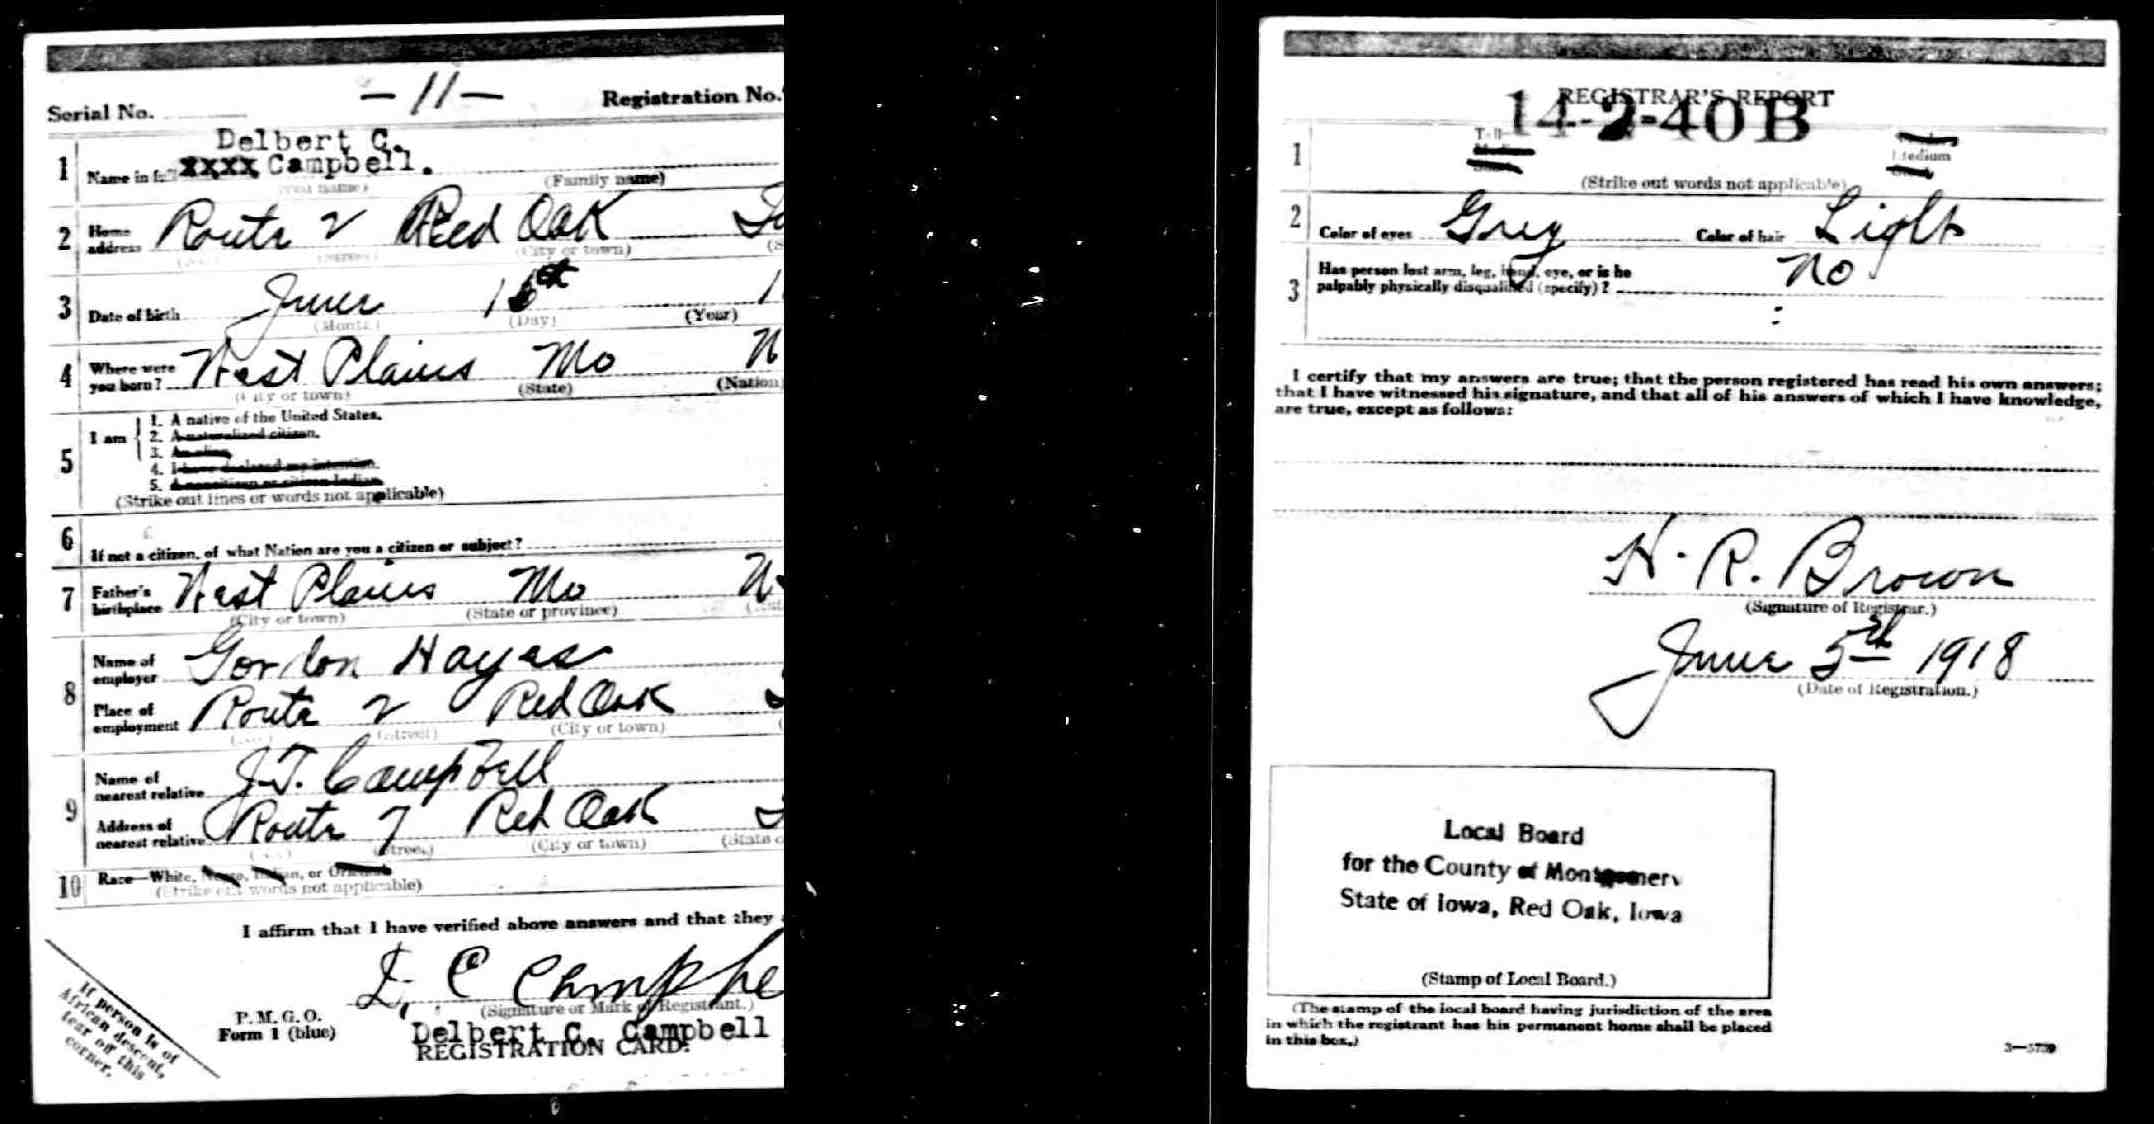 Serial No. — 11 — Registration No.
Delbert C.
1 Name in full xxxx Campbell.
(Family name)
2 Home address Route 2 Red Oak
(City or town)
3 Date of birth June 1
(Month) (Day) (Year)
4 Where were you born? West Plains Mo
(City or town) (State) (Nation
5 I am
1. A native of the United States.
2. A naturalized citizen.
3. An alien.
4. I have declared my intention.
5. A noncitizen or citizen Indian.
(Strike out lines or words not applicable)
6 If not a citizen, of what Nation are you a citizen or subject?
7 Father's birthplace West Plains Mo
(City or town) (State or province)
8 Name of employer Gordon Hayes
Place of employment Route 2 Red Oak
(Street) (City or town)
9 Name of nearest relative J.T. Campbell
Address of nearest relative Route 7 Red Oak
(Street) (City or town) (State
10 Race—White, Negro, Indian, or Oriental
(Strike out words not applicable)
I affirm that I have verified above answers and that they
C Campbe
(Signature or Mark of Registrant.)
P. M. G. O.
Form 1 (blue)
Delbert C. Campbell
REGISTRATION CARD.
If person is of
African descent,
tear off this
corner.
REGISTRAR'S REPORT
14-2-40 B
1 Tall Medium
(Strike out words not applicable)
2 Color of eyes Grey Color of hair Light
3 Has person lost arm, leg, hand, eye, or is he
palpably physically disqualified (specify)? No
I certify that my answers are true; that the person registered has read his own answers;
that I have witnessed his signature, and that all of his answers of which I have knowledge,
are true, except as follows:
H. R. Brown
(Signature of Registrar.)
June 5th 1918
(Date of Registration.)
Local Board
for the County of Montgomery
State of Iowa, Red Oak, Iowa
(Stamp of Local Board.)
(The stamp of the local board having jurisdiction of the area
in which the registrant has his permanent home shall be placed
in this box.)
3—5739